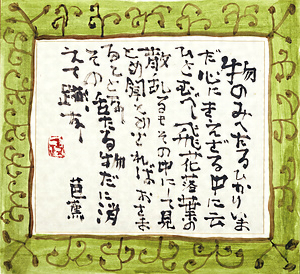 物のみへたるひかりいま
だ心にきえざる中に云
ひとむべし飛花落葉の
散乱るもその中にして見
とめ聞とめざればおさま
ることなし
その活たる物だに消
えて跡なし
芭蕉